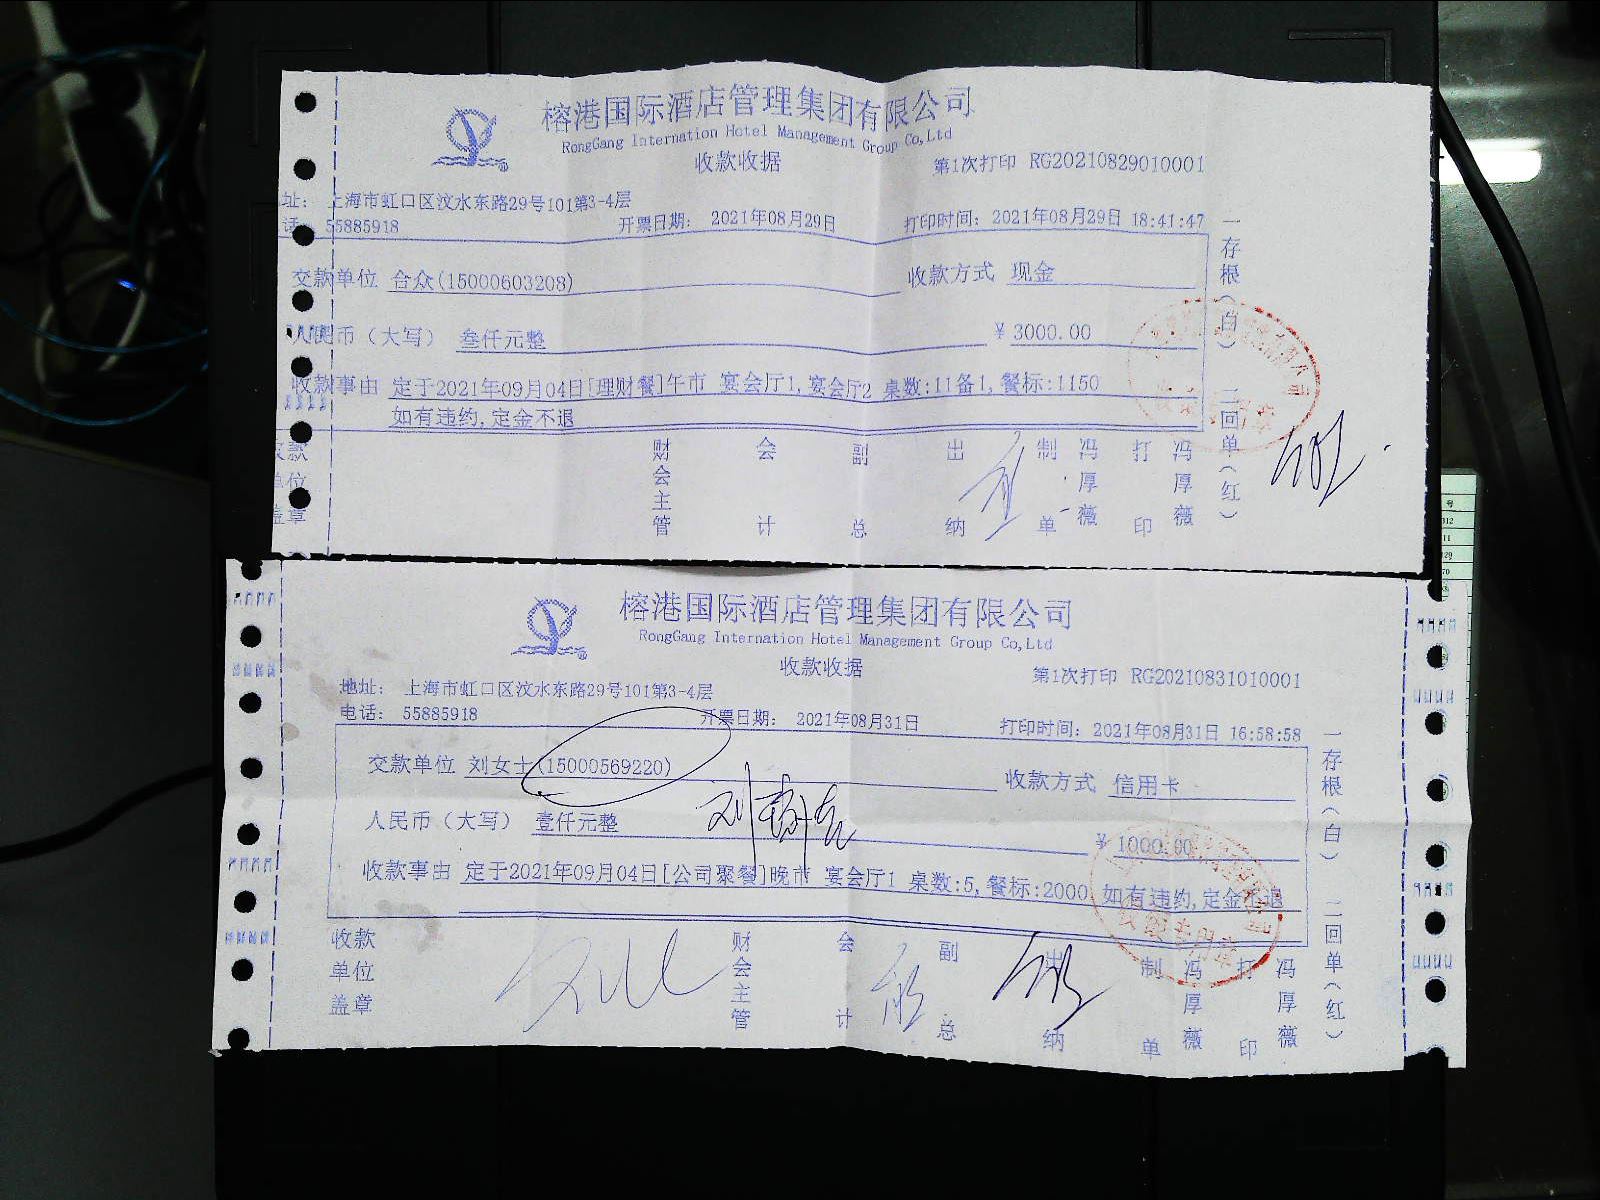 榕港国际酒店管理集团有限公司
RongGang Internation Hotel Management Group Co,Ltd
收款收据
第1次打印 RG20210829010001
址： 上海市虹口区汶水东路29号101第3-4层
话： 55885918 开票日期： 2021年08月29日 打印时间：2021年08月29日 18:41:47
交款单位 合众(15000603208) 收款方式 现金
人民币（大写） 叁仟元整 ¥ 3000.00
收款事由 定于2021年09月04日[理财餐]午市 宴会厅1,宴会厅2 桌数:11备1,餐标:1150
如有违约,定金不退
一存根（白） 二回单（红）
收款单位盖章 财会主管 会计 副总 出纳 制单 冯厚薇 打印 冯厚薇
榕港国际酒店管理集团有限公司
RongGang Internation Hotel Management Group Co,Ltd
收款收据
第1次打印 RG20210831010001
地址： 上海市虹口区汶水东路29号101第3-4层
电话： 55885918 开票日期： 2021年08月31日 打印时间：2021年08月31日 16:58:58
交款单位 刘女士(15000569220) 收款方式 信用卡
人民币（大写） 壹仟元整 ¥ 1000.00
收款事由 定于2021年09月04日[公司聚餐]晚市 宴会厅1 桌数:5,餐标:2000 如有违约,定金不退
一存根（白） 二回单（红）
收款单位盖章 财会主管 会计 副总 出纳 制单 冯厚薇 打印 冯厚薇